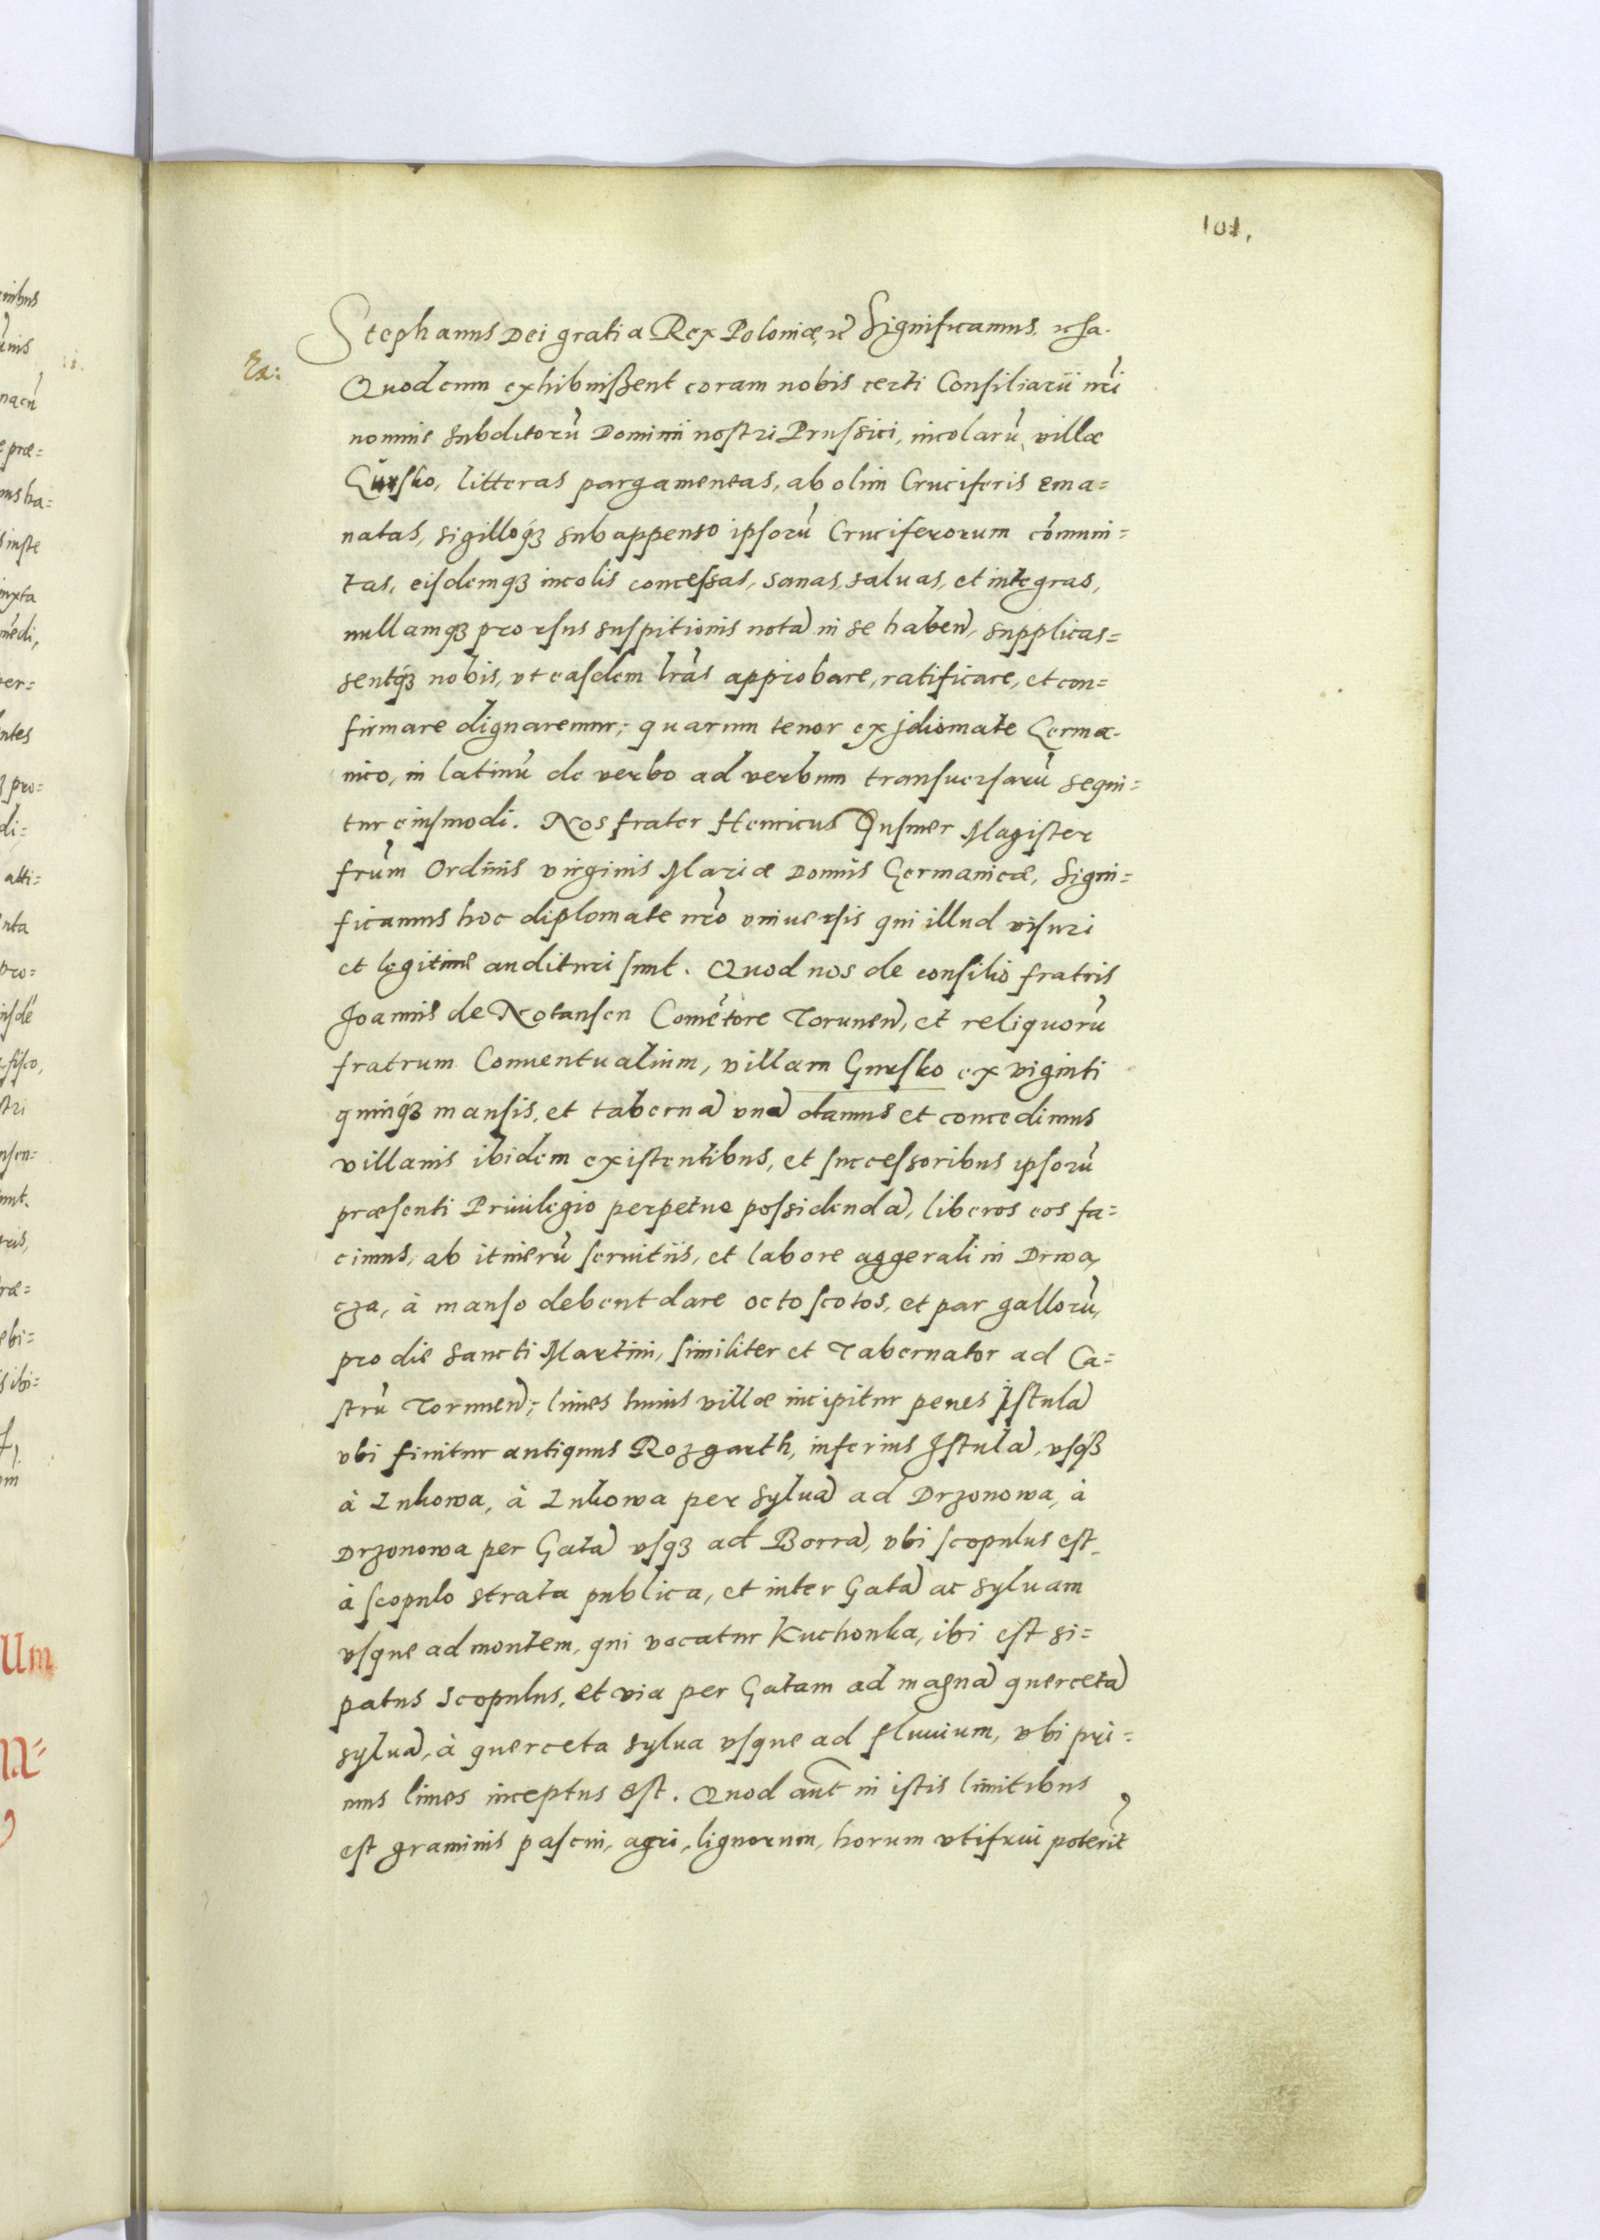 101.
Stephanus Dei gratia Rex Poloniæ, etc Significamus, etc sa.
Ex:
Quod cum exhibuißent coram nobis certi Consiliarii nr̃i
nomine subditorũ Dominii nostri Prussici, incolarũ villæ
Gursko, litteras pargameneas, ab olim Cruciferis ema=
natas, sigilloq́ꝫ subappenso ipsorũ Cruciferorum cõmuni=
tas, eisdemqꝫ incolis concessas, sanas, saluas, et integras,
nullamqꝫ prorsus suspitionis notã in se habeñ, supplicas=
sentq́ꝫ nobis, vt easdem lr̃as approbare, ratificare, et con=
firmare dignaremur; quarum tenor ex jdiomate Germa-
nico, in latinũ de verbo ad verbum transuersarũ sequi=
tur eiusmodi. Nos frater Henricus Dusmer Magister
frũm Ordinis virginis Mariæ Domus Germanicæ, Signi=
ficamus hoc diplomate nr̃o vniuersis qui illud visuri
et legitime audituri sunt. Quod nos de consilio fratris
Joannis de Notausen Comẽtore Toruneñ, et reliquorũ
fratrum Conuentualium, villam Gursko ex viginti
quinq́ꝫ mansis, et tabernã vnã damus et concedimus
villanis ibidem existentibus, et successoribus ipsorũ
præsenti Priuilegio perpetuo possidendã, liberos eos fa=
cimus, ab itinerũ seruitiis, et labore aggerali in Drwa,
cza, à manso debent dare octo scotos, et par gallorũ,
pro die Sancti Martini, similiter et Tabernator ad Ca=
strũ Toruneñ; limes huius villæ incipitur penes Jstulã
vbi finitur antiquus Rozgarth, inferius Jstulã, vsqꝫ
à Lukowa, à Lukowa per syluã ad Drzonowa, à
Drzonowa per Gatã vsqꝫ ad Borrã, vbi scopulus est,
à scopulo strata publica, et inter Gatã ac syluam
vsque ad montem, qui vocatur Kuchonka, ibi est si=
patus scopulus, et via per Gatam ad magnã quercetã
syluã, à querceta sylua vsque ad fluuium, vbi pri=
mus limes inceptus est. Quod aut̃ in istis limitibus
est graminis pascui, agri, lignorum, horum vtifrui poterit̃